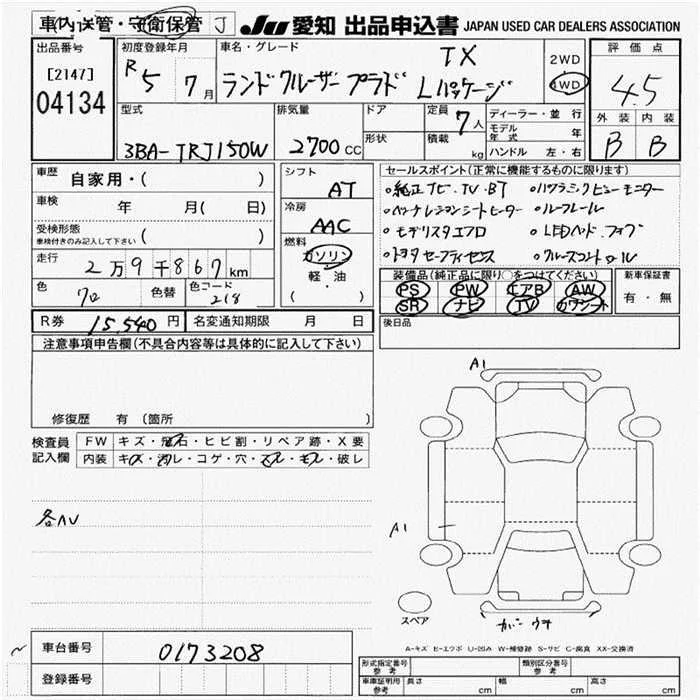 車内保管・守衛保管 J JU 愛知 出品申込書 JAPAN USED CAR DEALERS ASSOCIATION
出品番号 [2147] 04134
初度登録年月 R 5 7月
車名・グレード TX
ランドクルーザー プラド Lパッケージ
2WD 4WD
評価点 4.5
外装 内装 B B
型式 3BA-TRJ150W
排気量 2700 CC
ドア 形状
定員 7人 積載 kg
ディーラー・並行
モデル年式 年
ハンドル 左・右
車歴 自家用・( )
車検 年 月( 日)
受検形態 車検付きのみ記入して下さい ( )
走行 2万9千867km
色 70 色替 色コード 218
シフト AT
冷房 AAC
燃料 ガソリン 軽・油 ( )
セールスポイント(正常に機能するものに限ります)
・純正ナビ・TV・BT ・パノラミックビューモニター
・ベンチレーションシートヒーター ・ルーフレール
・モデリスタエアロ ・LEDヘッド・フォグ
・トヨタセーフティセンス ・クルーズコントロール
装備品(純正品に限り○をつけてください)
PS PW エアB AW
SR ナビ TV カワシート
新車保証書 有・無
R券 15,540円 名変通知期限 月 日
後日品
注意事項申告欄(不具合内容等は具体的に記入して下さい)
修復歴 有(箇所 )
検査員記入欄 FW キズ・飛石・ヒビ割・リペア跡・X要
内装 キズ・汚レ・コゲ・穴・スレ・モレ・破レ
各AU
A1
A1
スペア
カバー ウキ
A-キズ E-エクボ U-凹み W-補修跡 S-サビ C-腐食 XX-交換済
車台番号 0173208
登録番号
形式指定番号 参考 類別区分番号 参考
車庫証明用 参考 長さ cm 幅 cm 高さ cm